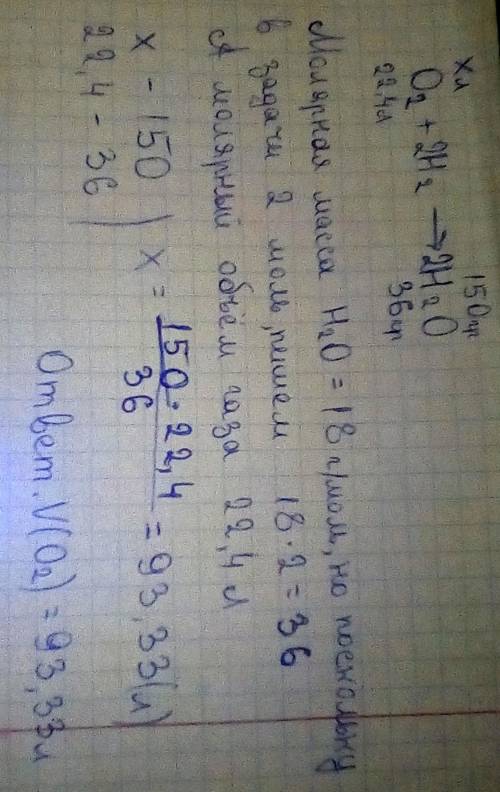 хл 150гр
O₂ + 2H₂ → 2H₂O
22,4л 36гр
Молярная масса H₂O = 18 г/мол, но поскольку
в задачи 2 моль, пишем 18 · 2 = 36
А молярный объём газа 22,4 л
x – 150 | x = 150 · 22,4 / 36 = 93,33(л)
22,4 – 36
Ответ. V(O₂) = 93,33л